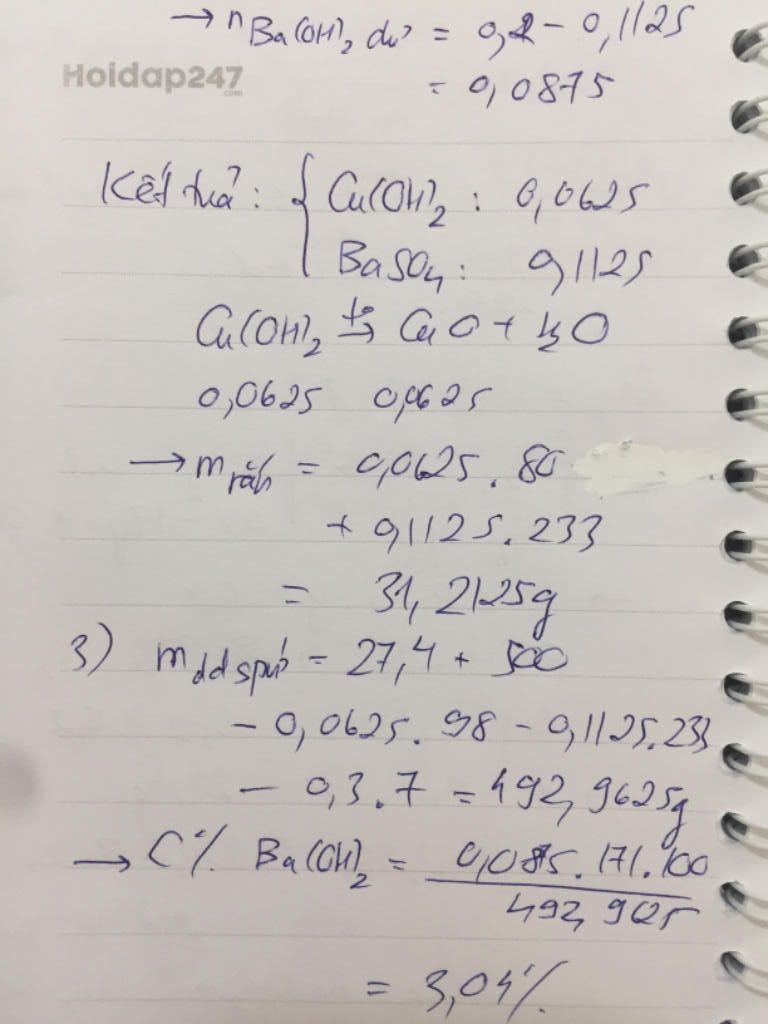 → nBa(OH)2 dư = 0,2 - 0,1125
Hoidap247
.com
= 0,0875
Kết tủa: { Cu(OH)2 : 0,0625
BaSO4 : 0,1125
Cu(OH)2 t° → CuO + H2O
0,0625 0,0625
→ m rắn = 0,0625 . 80
+ 0,1125 . 233
= 31,2125g
3) m dd spứ = 27,4 + 500
- 0,0625 . 98 - 0,1125 . 233
- 0,3 . 7 = 492,9625g
→ C% Ba(OH)2 = 0,0875 . 171 . 100
492,9625
= 3,04%